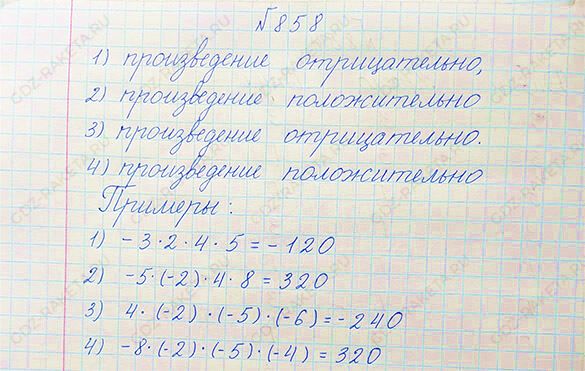 №858
1) произведение отрицательно,
2) произведение положительно
3) произведение отрицательно.
4) произведение положительно
Примеры:
1) -3·2·4·5=-120
2) -5·(-2)·4·8=320
3) 4·(-2)·(-5)·(-6)=-240
4) -8·(-2)·(-5)·(-4)=320